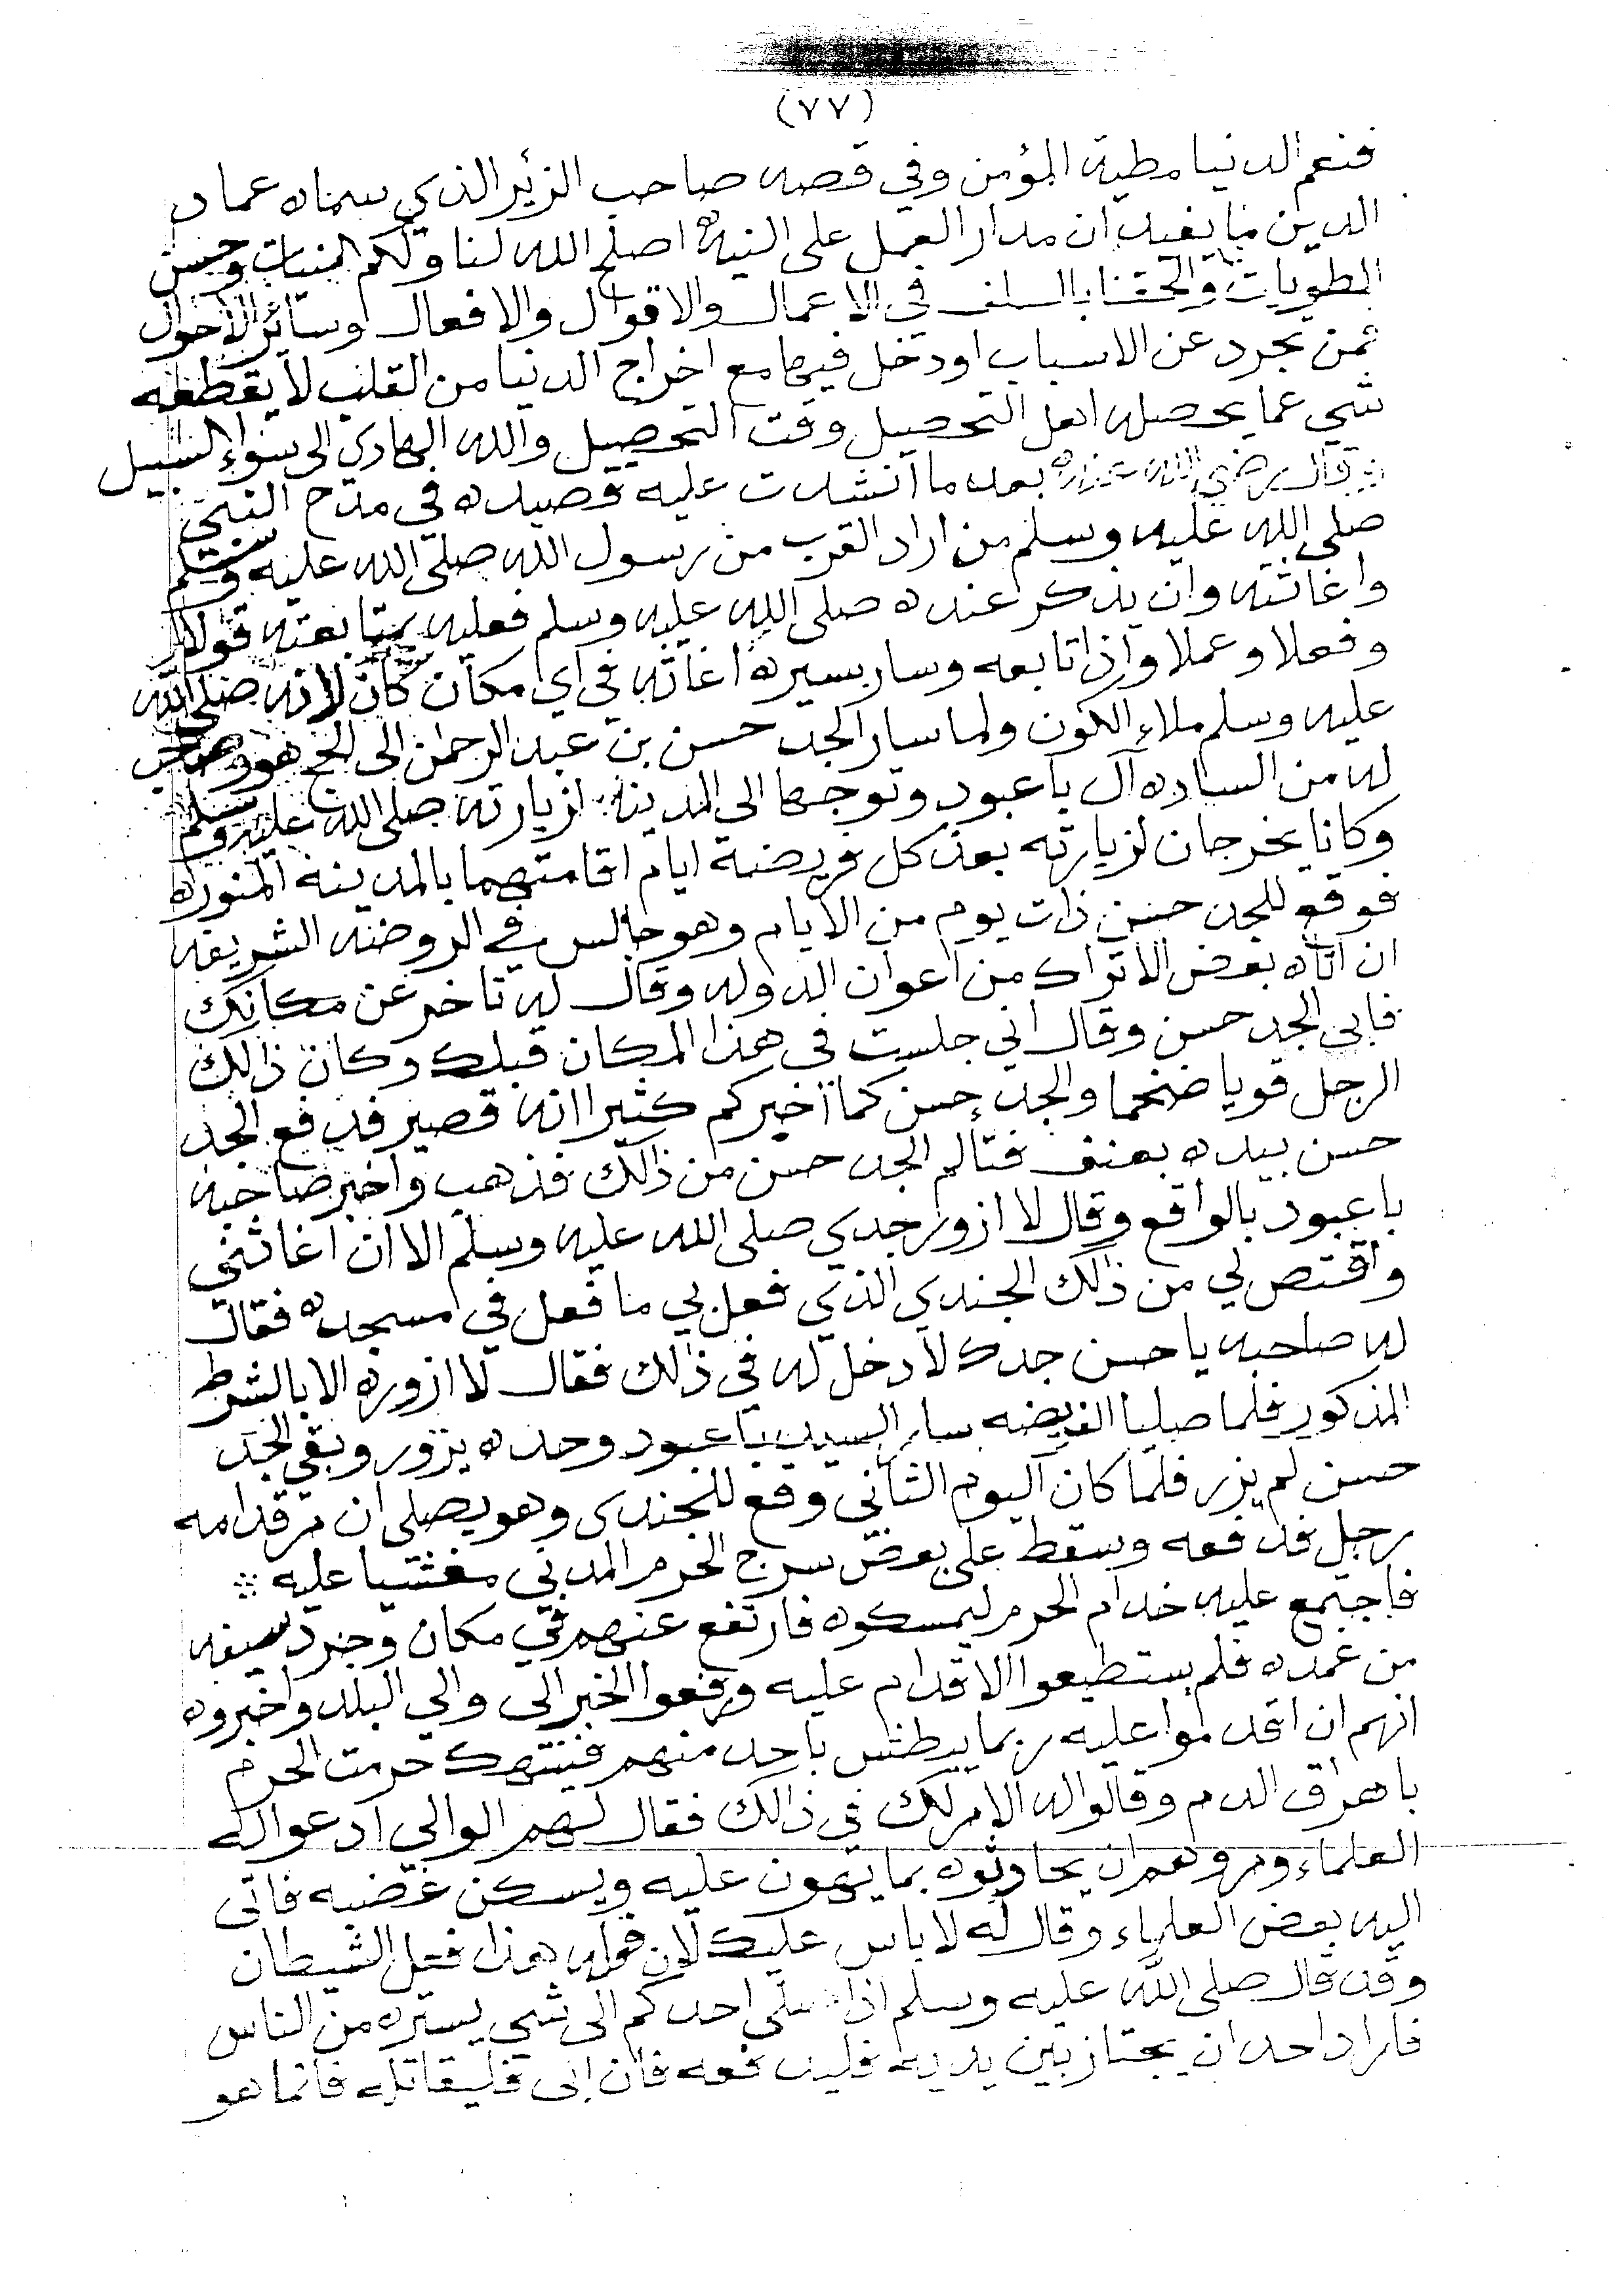 (٧٧)
فنعم الدنيا مطية المؤمن وفي قصه صاحب الزير الذي سماه عماد
الدين ما يفيد ان مدار العمل على النيه اصلح الله لنا ولكم النيات وحسن
الطويات والحقنا بالسلف في الاعمال والاقوال والافعال وسائر الاحوال
فمن تجرد عن الاسباب او دخل فيها مع اخراج الدنيا من القلب لا يقطعه
شي عما يحصله اهل التحصيل وقت التحصيل والله الهادي الى سواء السبيل
وقال رضي الله عنه بعد ما انشدت عليه قصيده في مدح النبي
صلى الله عليه وسلم من اراد القرب من رسول الله صلى الله عليه وسلم
واغاثته وان يذكر عنده صلى الله عليه وسلم فعليه بمتابعته قولا
وفعلا وعملا واذا تابعه وسار بسيره اغاثه في اي مكان كان لانه صلى الله
عليه وسلم ملاء الكون ولما سار الجد حسن بن عبد الرحمن الى الحج هو وصاحب
له من الساده آل باعبود وتوجها الى المدينه لزيارته صلى الله عليه وسلم
وكانا يخرجان لزيارته بعد كل فريضة ايام اقامتهما بالمدينه المنوره
فوقع للجد حسن ذات يوم من الايام وهو جالس في الروضه الشريفه
ان اتاه بعض الاتراك من اعوان الدوله وقال له تاخر عن مكانك
فابى الجد حسن وقال اني جلست في هذا المكان قبلك وكان ذالك
الرجل قويا ضخما والجد حسن كما اخبركم كثيرا انه قصير فدفع الجد
حسن بيده بعنف فتالم الجد حسن من ذالك فذهب واخبر صاحبه
باعبود بالواقع وقال لا ازور جدي صلى الله عليه وسلم الا ان اغاثني
واقتص لي من ذالك الجندي الذي فعل بي ما فعل في مسجده فقال
له صاحبه يا حسن جدك لا دخل له في ذالك فقال لا ازوره الا بالشرط
المذكور فلما صليا الفريضه سار السيد باعبود وحده يزور وبقي الجد
حسن لم يزر فلما كان اليوم الثاني وقع للجندي وهو يصلي ان مر قدامه
رجل فدفعه وسقط على بعض سرج الحرم المدني مغشيا عليه
فاجتمع عليه خدام الحرم ليمسكوه فارتفع عنهم في مكان وجرد سيفه
من غمده فلم يستطيعوا الاقدام عليه ورفعوا الخبر الى والي البلد واخبروه
انهم ان اقدموا عليه ربما يبطش باحد منهم فتنتهك حرمت الحرم
باهراق الدم وقالوا له الامر لك في ذالك فقال لهم الوالي ادعوا له
العلماء ومروهم ان يحادثوه بما يهون عليه ويسكن غضبه فاتى
اليه بعض العلماء وقال له لا باس عليك لان فعله هذا فعل الشيطان
وقد قال صلى الله عليه وسلم اذا صلى احدكم الى شي يستره من الناس
فاراد احد ان يجتاز بين يديه فليدفعه فان ابى فليقاتله فانما هو